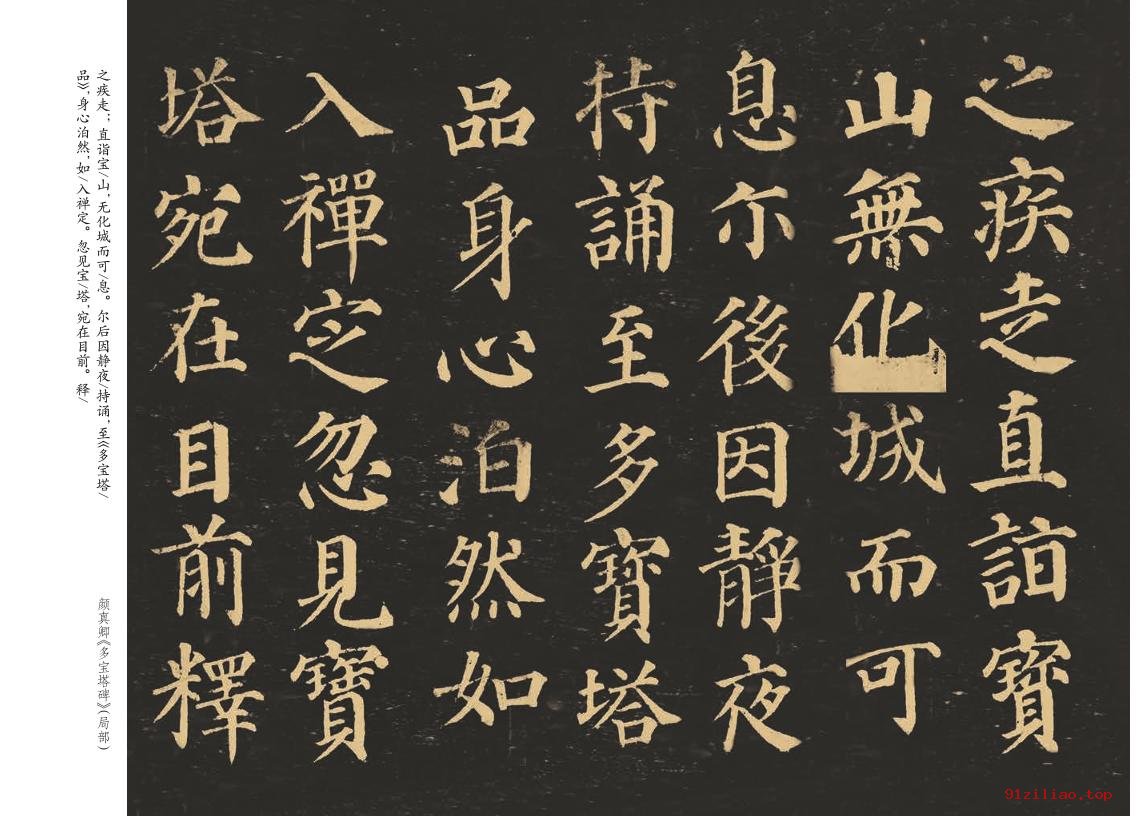 之疾走直詣寶
山無化城而可
息尒後因靜夜
持誦至多寶塔
品身心泊然如
入禪定忽見寶
塔宛在目前釋
之疾走；直诣宝/山，无化城而可/息。尔后因静夜/持诵，至《多宝塔/
品》，身心泊然，如/入禅定。忽见宝/塔，宛在目前。释/
颜真卿《多宝塔碑》（局部）
91ziliao.top